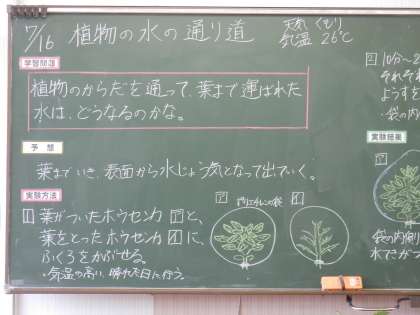 7/16 植物の水の通り道
天気 くもり
気温 26℃
学習問題
植物のからだを通って、葉まで運ばれた
水は、どうなるのかな。
予想
葉までいき、表面から水じょう気となって出ていく。
実験方法
1 葉がついたホウセンカ アと、
葉をとったホウセンカ イに、
ふくろをかぶせる。
・気温の高い、晴れた日に行う。
ア
ポリエチレンの袋
イ
2 10分〜2
それぞれ
ようすを
・袋の内
実験結果
ア
袋の内側
水てきがつ